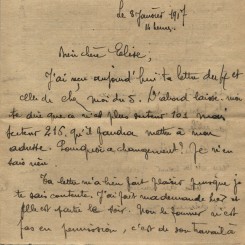 Le 8 Janvier 1917
16 heures.
Mon cher Elise,
J'ai reçu aujourd'hui ta lettre du 4 et
celles de chez moi du 5. D'abord laisse-moi
te dire que ce n'est plus secteur 101 mais
secteur 216, qu'il faudra mettre à mon
adresse. Pourquoi ce changement? Je n'en
sais rien.
Ta lettre m'a bien fait plaisir puisque je
te sais contente. J'ai fait ma demande hier et
elle est partie le soir. Non le fourrier n'est
pas en permission, c'est de son travail à